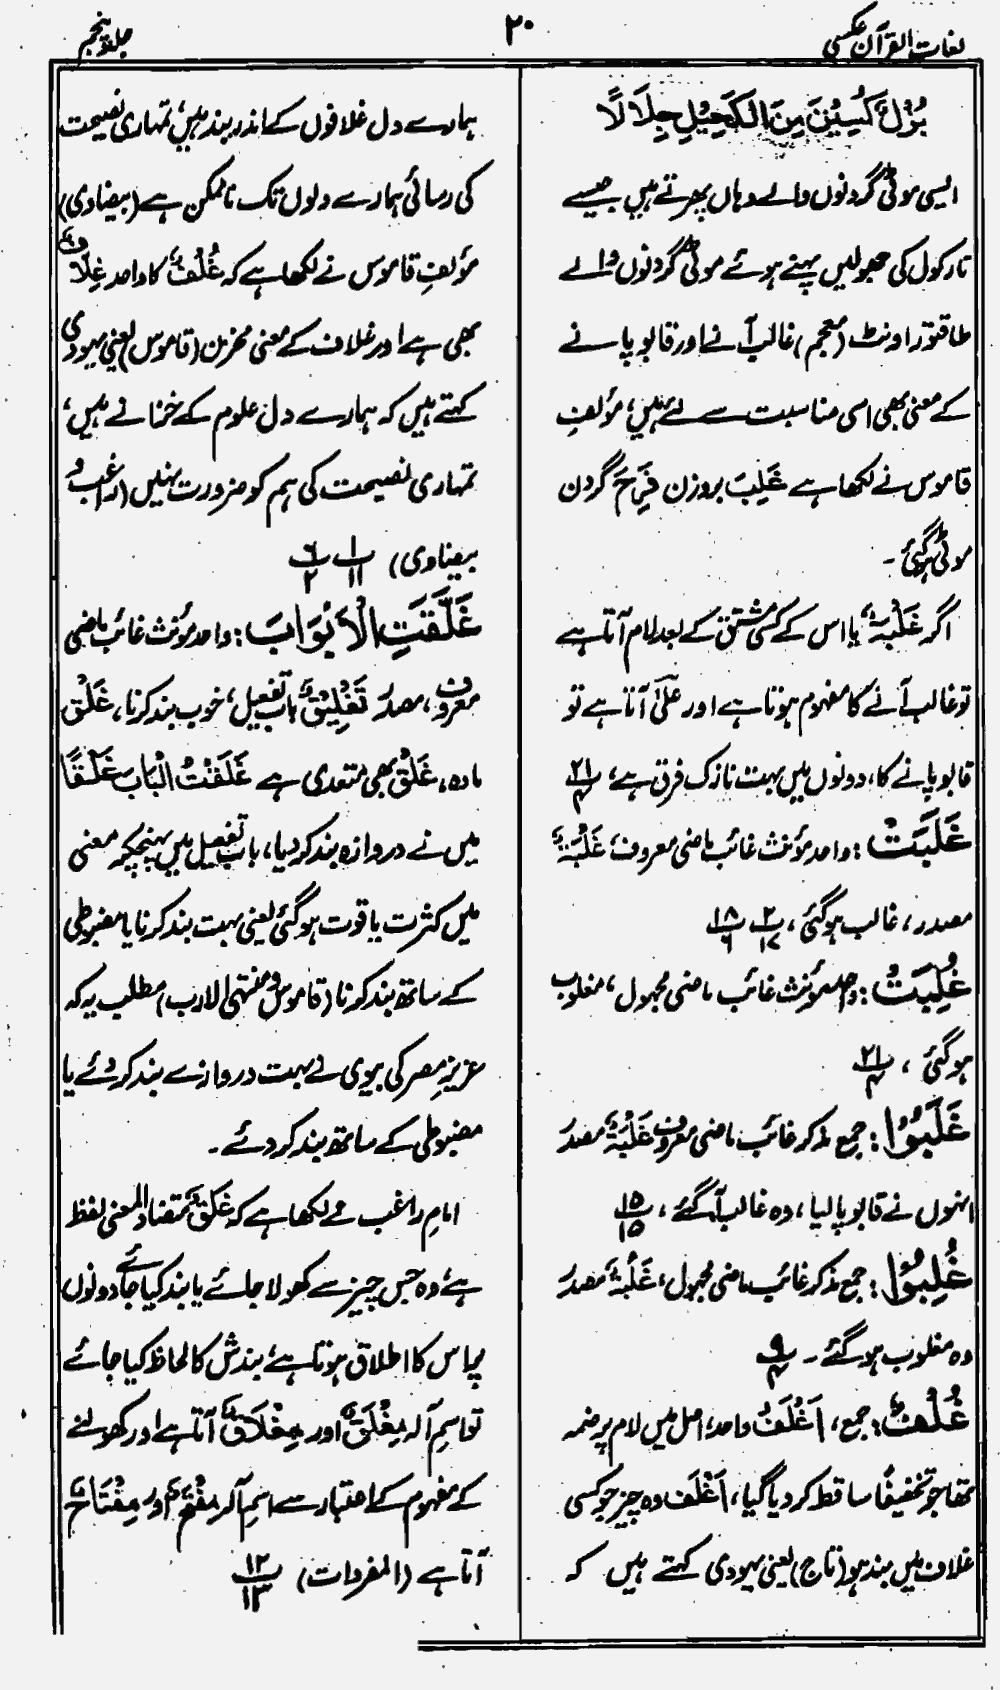 لغات القرآن عکسی
۲۰
جلد پنجم
بُزْلٌ كَسِيْنَ مِنَ الكَحِيْلِ جِلَالًا
ایسی موٹی گردنوں والے وہاں پھرتے ہیں جیسے
تارکول کی جھولیں پہنے ہوئے موٹی گردنوں والے
طاقتور اونٹ (معجم) غالب آنے اور قابو پانے
کے معنی بھی اسی مناسبت سے لئے ہیں، مؤلفِ
قاموس نے لکھا ہے غَلِبَ بروزن فَرِحَ گردن
موٹی ہوگئی۔
اگر غَلَبَۃٌ یا اس کے کسی مشتق کے بعد لام آتا ہے
تو غالب آنے کا مفہوم ہوتا ہے اور علیٰ آتا ہے تو
قابو پانے کا، دونوں میں بہت نازک فرق ہے، ۲۱/۴
غَلَبَتْ: واحد مؤنث غائب ماضی معروف، غَلَبَۃٌ
مصدر، غالب ہوگئی، ۲/۱۷ ۱۸/۶
غُلِبَتْ: واحد مؤنث غائب ماضی مجہول، مغلوب
ہوگئی، ۲۱/۴
غَلَبُوْا: جمع مذکر غائب ماضی معروف غَلَبَۃٌ مصدر
انہوں نے قابو پالیا، وہ غالب آگئے، ۱۵/۱۵
غُلِبُوْا: جمع مذکر غائب ماضی مجہول، غَلَبَۃٌ مصدر
وہ مغلوب ہوگئے۔ ۹/۴
غُلْفٌ: جمع، اَغْلَفُ واحد، اصل میں لام پر ضمہ
تھا جو تخفیفًا ساقط کر دیا گیا، اَغْلَف وہ چیز جو کسی
غلاف میں بند ہو (تاج) یعنی یہودی کہتے ہیں کہ
ہمارے دل غلافوں کے اندر بند ہیں، تمہاری نصیحت
کی رسائی ہمارے دلوں تک ناممکن ہے (بیضاوی)
مؤلفِ قاموس نے لکھا ہے کہ غُلْفٌ کا واحد غِلَافٌ
بھی ہے اور غلاف کے معنی مخزن (قاموس) یعنی یہودی
کہتے ہیں کہ ہمارے دل علوم کے خزانے ہیں،
تمہاری نصیحت کی ہم کو ضرورت نہیں (راغب و
بیضاوی) ۱/۱۱ ۶/۲
غَلَّقَتِ الْاَبْوَابَ: واحد مؤنث غائب ماضی
معروف، مصدر تَغْلِیْقٌ باب تفعیل، خوب بند کرنا، غَلْق
مادہ، غَلْقٌ بھی متعدی ہے غَلَقْتُ الْبَابَ غَلْقًا
میں نے دروازہ بند کر دیا، باب تفعیل میں پہنچکر معنی
میں کثرت یا قوت ہوگئی یعنی بہت بند کرنا یا مضبوطی
کے ساتھ بند کرنا (قاموس و منتہی الارب) مطلب یہ کہ
عزیزِ مصر کی بیوی نے بہت دروازے بند کر دئے یا
مضبوطی کے ساتھ بند کر دئے۔
امام راغب نے لکھا ہے کہ غَلَقٌ متضاد المعنی لفظ
ہے، وہ جس چیز سے کھولا جائے یا بند کیا جائے دونوں
پر اس کا اطلاق ہوتا ہے، بندش کا لحاظ کیا جائے
تو اسمِ آلہ مِغْلَقٌ اور مِغْلَاقٌ آتا ہے اور کھولنے
کے مفہوم کے اعتبار سے اسمِ آلہ مِفْتَحٌ اور مِفْتَاحٌ
آتا ہے (المفردات) ۱۲/۱۳